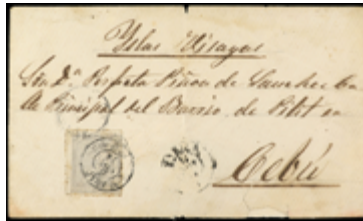 Yslas Visayas
Sra Dª Perfeta Piñon de Sanchez Ca
lle Principal del Barrio de
Cebú